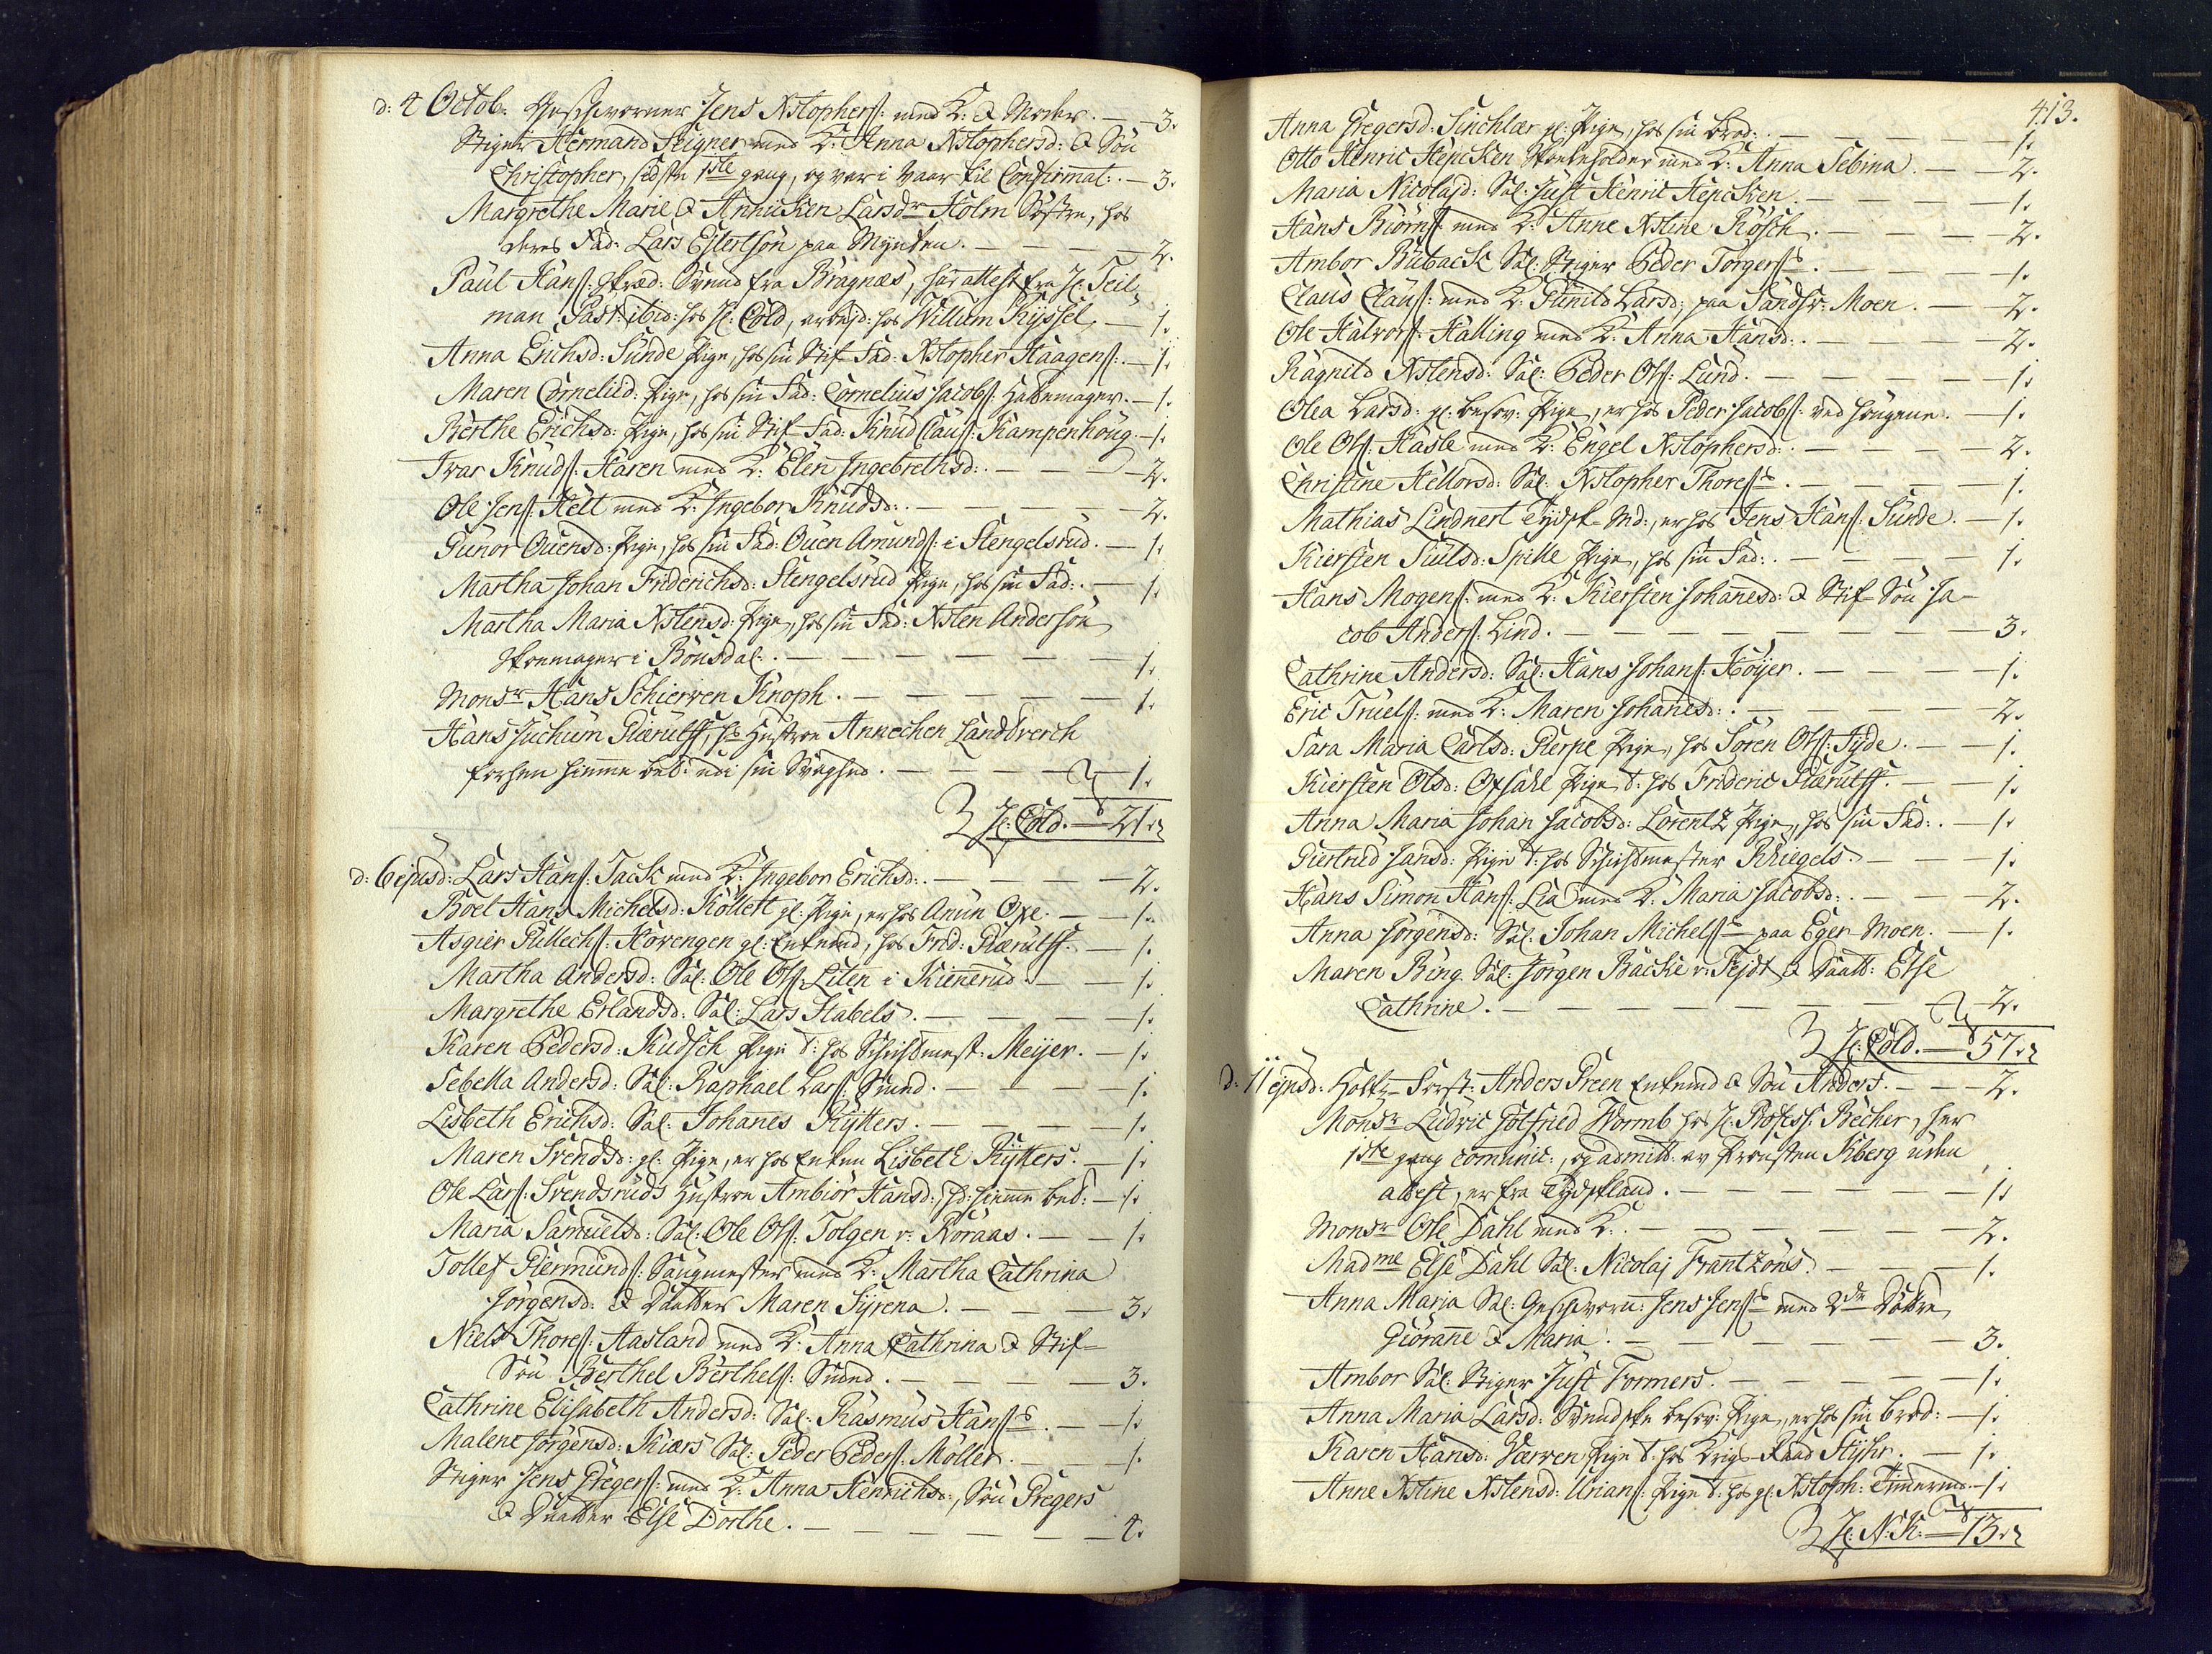 d: 4 Octob: Geschworner Jens Xstophers: med K: & Moder. — 3.
Stiger Hermand Seigner med K: Anna Xstophersd: & Sön
Christopher, sidste 1ste gang, og var i Vaar til Confirmat: . — 3.
Margrethe Marie & Annicken Larsdr Holm Söstre, hos
deres Fad: Lars Ejlertsön paa Mynten. — 2.
Paul Hans: Skræd: Svend fra Bragnæs, har attest fra H: Teil-
man Past: ibid: hos H: Cold, arbejd: hos Willum Kyssel, — 1.
Anna Erichsd: Sunde Pige, hos sin Stif-Fad: Xstopher Haagens: . — 1.
Maren Cornelied: Pige, hos sin Fad: Cornelius Jacobs: — 1.
Berthe Erichsd: Pige, hos sin Stif-Fad: Knud Claus: Kampenhoug. — 1.
Ivar Knuds: Haren med K: Elen Ingebrethsd: . — 2.
Ole Jens: Helt med K: Ingebor Knudsd: . — 2.
Gunor Ouensd: Pige, hos sin Fad: Ouen Amunds: i Stengelsrud. — 1.
Martha Johan Friderichsd: Stengelsrud Pige, hos sin Fad: . — 1.
Martha Maria Xstensd: Pige, hos sin Fad: Xsten Andersön
Skomager i Bönsdal: . — 1.
Monsr Hans Schierven Knoph. — 1.
Hans Juchum Giærulff, hs Hustroe Annechen Landtverch
forhen hiemme bet: udi sin Svaghed. — 1.
H: Cold. — 21.
d: 6 ejusd: Lars Hans: Tack med K: Ingebor Erichsd: . — 2.
Boel Hans Michelsd: Kollett gl: Pige, er hos Anun Oxe. — 1.
Asgier Gullechs: Hovengen gl: Enkemd, hos Frid: Giærulff. — 1.
Martha Andersd: Sal: Ole Ols: Liten i Kienerud. — 1.
Margrethe Erlandsd: Sal: Lars Stabels. — 1.
Karen Pedersd: Kudsch Pige t: hos Schichtmest: Meijer. — 1.
Sebella Andersd: Sal: Raphael Lars: Svend. — 1.
Lisbeth Erichsd: Sal: Johanes Rytters. — 1.
Maren Svendsd: gl: Pige, er hos Enken Lisbeth Rytters. — 1.
Ole Lars: Svendsruds Hustroe Ambiör Hansd: hiemme bet: — 1.
Maria Samuelsd: Sal: Ole Ols: Tolgen v: Röraas. — 1.
Tollef Giermunds: Saugmester med K: Martha Cathrina
Jörgensd: & Daatter Maren Syrena. — 3.
Niels Thores: Aasland med K: Anna Cathrina & Stif-
Sön Berthel Berthels: Svend. — 3.
Cathrine Elisabeth Andersd: Sal: Rasmus Hanss. — 1.
Malene Jörgensd: Kiærs Sal: Peder Peders: Möller. — 1.
Stiger Jens Gregers: med K: Anna Henrichsd:, Sön Gregers
& Daatter Else Dorthe. — 4.
413.
Anna Gregersd: Sinchlar gl: Pige, hos sin Brod: . — 1.
Otto Henric Hepcken med K: Anna Sebina. — 2.
Maria Nicolajd: Sal: Just Henric Hepcken. — 1.
Hans Biörns: med K: Anne Xstine Rösch. — 2.
Ambor Buback Sal: Stiger Peder Torgerss. — 1.
Claus Claus: med K: Gunild Larsd: paa Sandsv: Moen. — 2.
Ole Halvors: Halling med K: Anna Hansd: . — 2.
Ragnild Xstensd: Sal: Peder Ols: Lund. — 1.
Olea Larsd: gl: besov: Pige, er hos Peder Jacobs: ved Haugene. — 1.
Ole Ols: Hasle med K: Engel Xstophersd: . — 2.
Christine Hellorsd: Sal: Xstopher Thoress. — 1.
Mathias Lindnert Tydsk-Md:, er hos Jens Hans: Sunde. — 1.
Kiersten Siulsd: Spille Pige, hos sin Fad: . — 1.
Hans Mogens: med K: Kiersten Johanesd: & Stif-Sön Ja-
cob Anders: Lind. — 3.
Cathrine Andersd: Sal: Hans Johans: Höijer. — 1.
Eric Truels: med K: Maren Johanesd: . — 2.
Sara Maria Carlsd: Gierpe Pige, hos Sören Ols: Fyde. — 1.
Kiersten Olsd: Opsahl Pige t: hos Frideric Giærulff. — 1.
Anna Maria Johan Jacobsd: Lorentz Pige, hos sin Fad: . — 1.
Giertrud Jansd: Pige t: hos Schichtmester Kriegels. — 1.
Hans Simon Hans: Lia med K: Maria Jacobsd: . — 2.
Anna Jörgensd: Sal: Johan Michelss paa Eger Moen. — 1.
Maren Bing Sal: Jörgen Backe v: Vejdt & Daatt: Else
Cathrine. — 2.
H: Cold. — 57.
d: 11 ejusd: Holtz-Först: Anders Preen Enkemd & Sön Anders. — 2.
Monsr Ludvic Gotfried Wormb hos H: Profess: Becher, her
1ste gang comunic:, og admitt: av Prousten Kberg uden
attest, er fra Tydskland. — 1.
Monsr Ole Dahl med K: . — 2.
Madme Else Dahl Sal: Nicolaj Frantzöns. — 1.
Anna Maria Sal: Geschworn: Jens Jenss med 2de Döttre
Giörane & Maria. — 3.
Ambor Sal: Stiger Just Tormers. — 1.
Anna Maria Larsd: Svendske besov: Pige, er hos sin Brod: — 1.
Karen Hansd: Værven Pige t: hos Krigs-Raad Styhr. — 1.
Anne Xstine Xstensd: Urians: Pige t: hos gl: Xstoph: Timermd. — 1.
H: N: K: — 13.